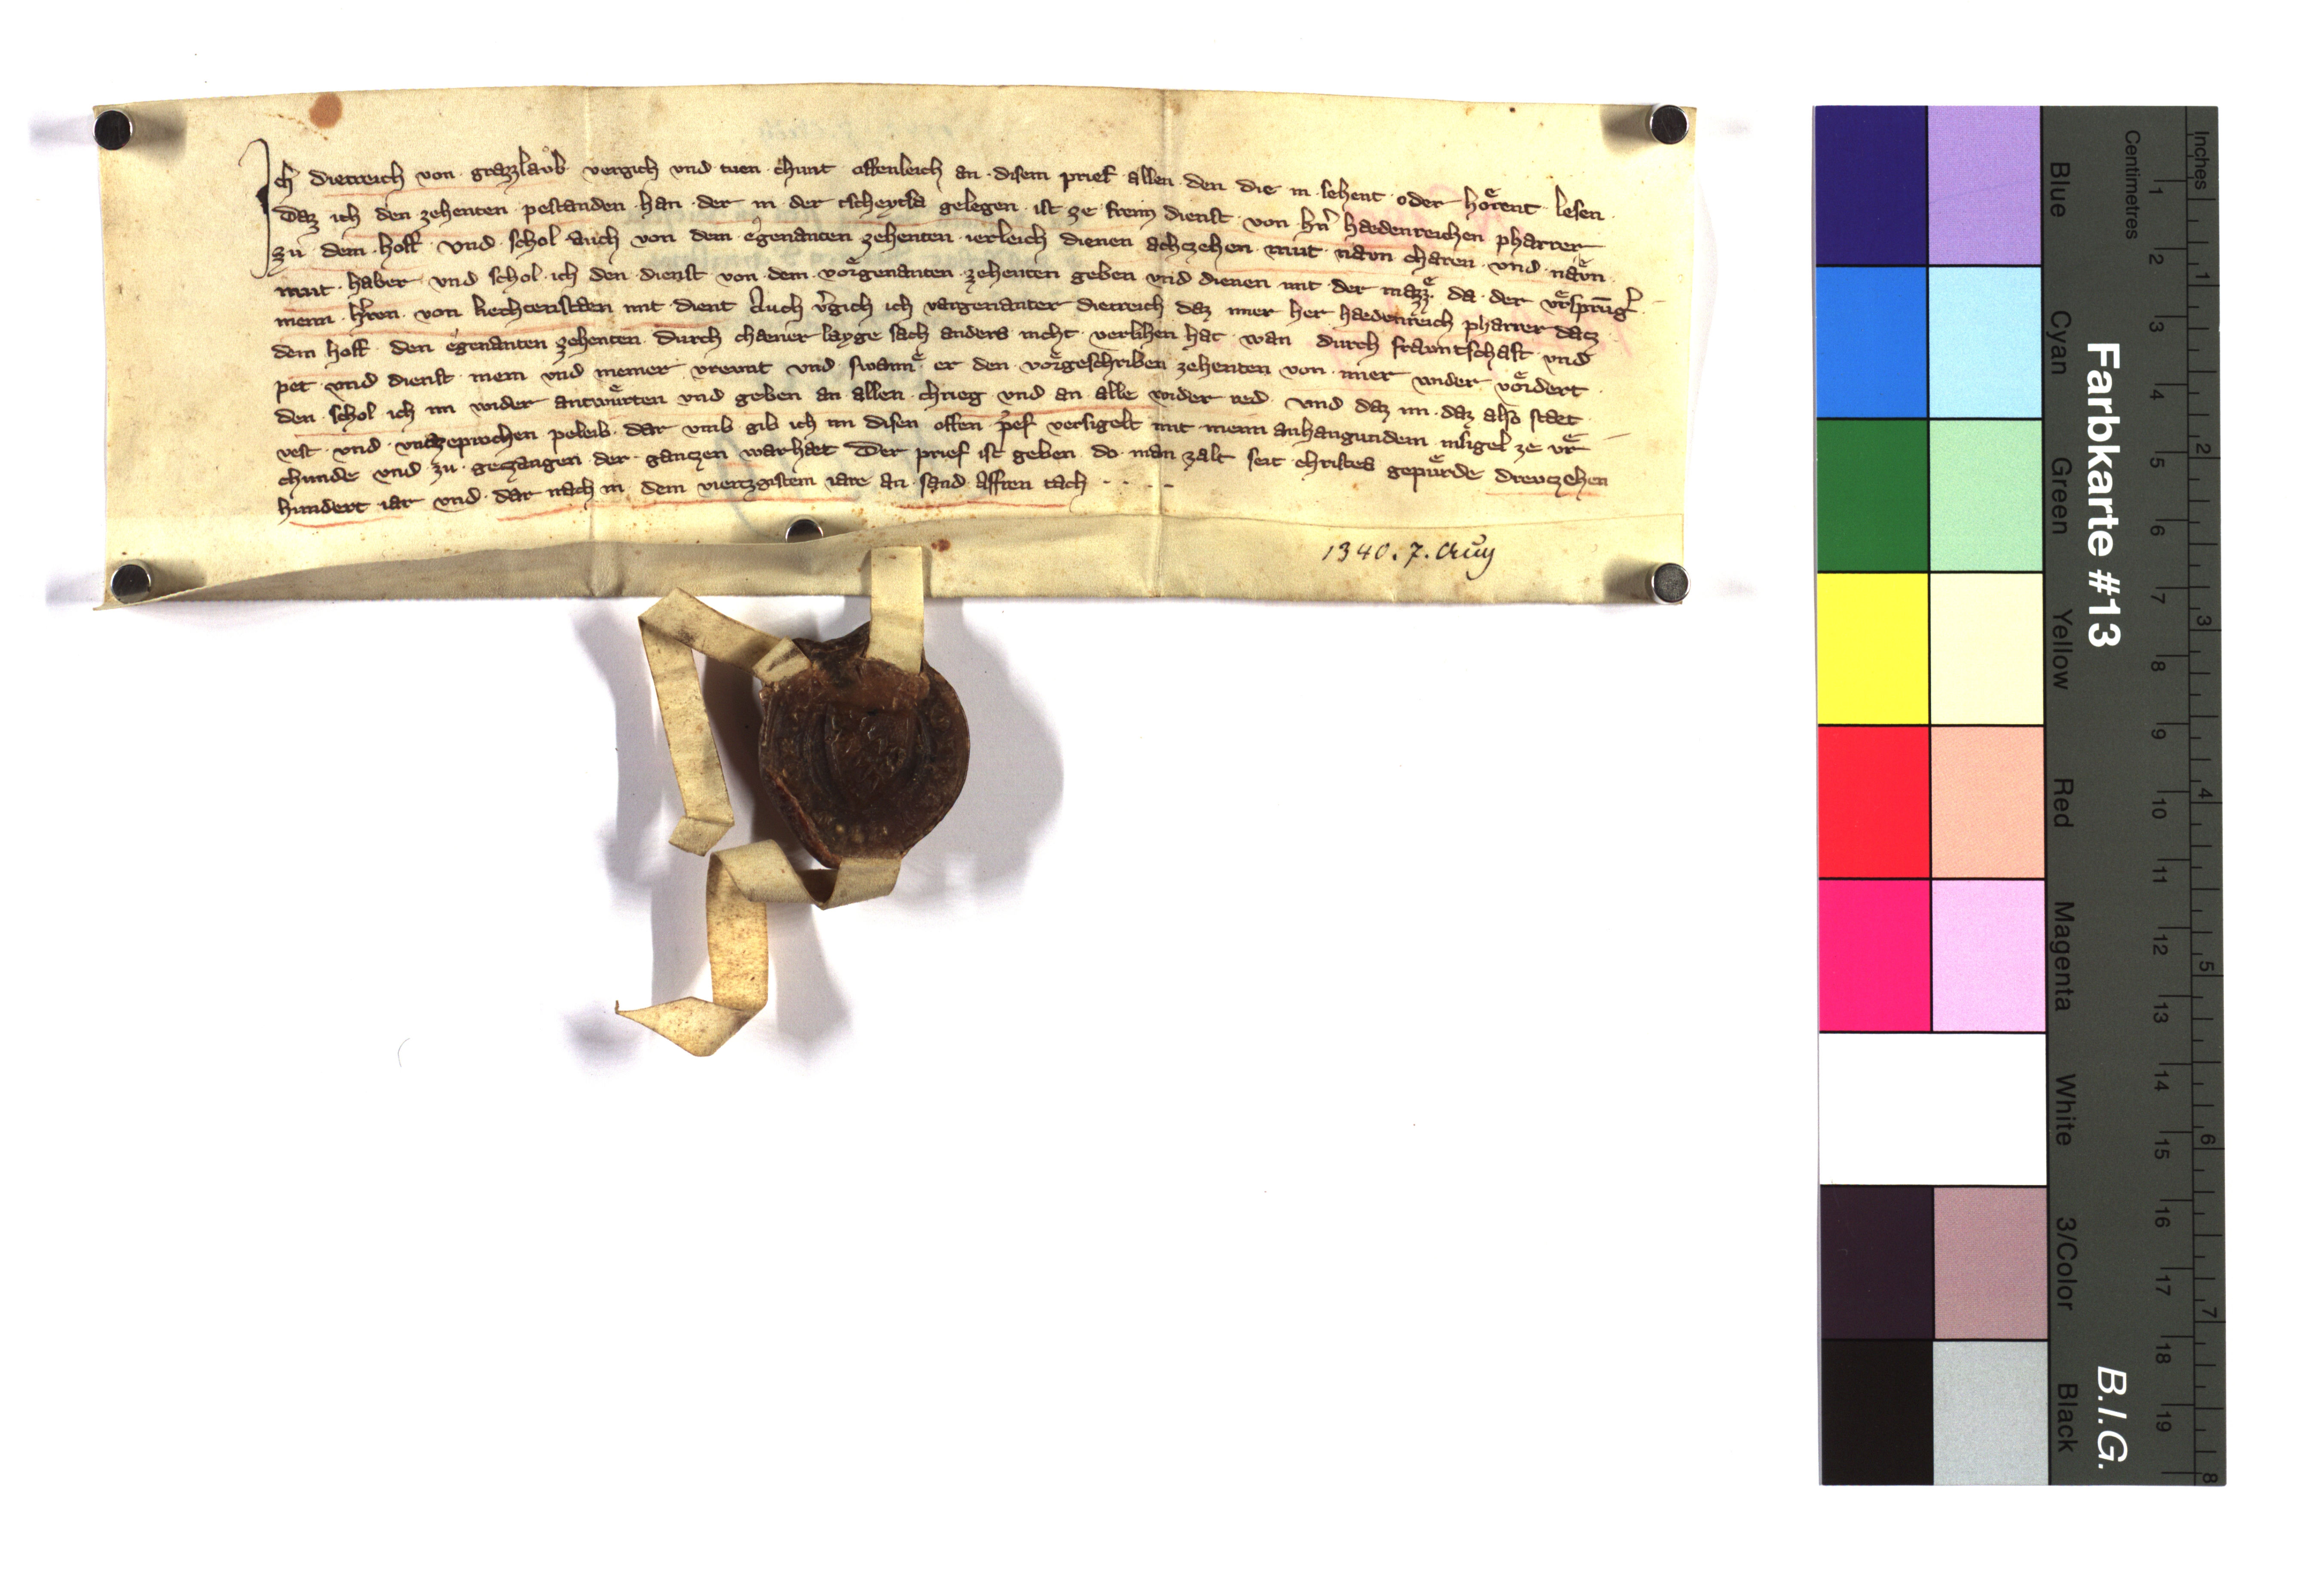 Ich dietreich von grazzlaub vergich und tuen chunt offenleich an disem prief allen den die in sehent oder hoͤrent lesen
Daz ich den zehenten pestanden han der in der tscheytsa gelegen ist ze frein dienst von hn̄ haedenreichen pharrer
zu dem hoff und schol auch von dem egenanten zehenten ierleich dienen achczehen mut navn charen und navͤn
mut haber und schol ich den dienst von dem voͤrgenanten zehenten geben und dienen mit der mazzͤ da der
meīn hr̄ren von liechtenstaen mit dient Auch vͤgich ich vargenanter dietreich daz mier her haedenreich pharrer dacz
dem hoff den egenanten zehenten durch chaener layge sach anders nicht verlihen hat wan durch fravntschaft und
pet und dienst mein und meiner vrevnt und swannͤ er den voͤrgeschriben zehenten von mier wider voͤdert
den schol ich im wider antwuͤrten und geben an allen chrieg und an alle wider red und daz im daz also staet
vest und unczeprochen peleib dar umb gib ich im disen offen p̄ef versigelt mit meinn anhangundem insigel ze vͤr
chunde und zu gezaugen der ganczen warhaet Der prief ist geben do man zalt seit christes gepuͤrde drevczehen
hundert iar und dar nach in dem viertzgistem iare an sand Affren tach
1340. 7. Aug
Farbkarte #13
B.I.G.
Centimetres
Inches
Blue
Cyan
Green
Yellow
Red
Magenta
White
3/Color
Black
1 2 3 4 5 6 7 8 9 10 11 12 13 14 15 16 17 18 19
1 2 3 4 5 6 7 8